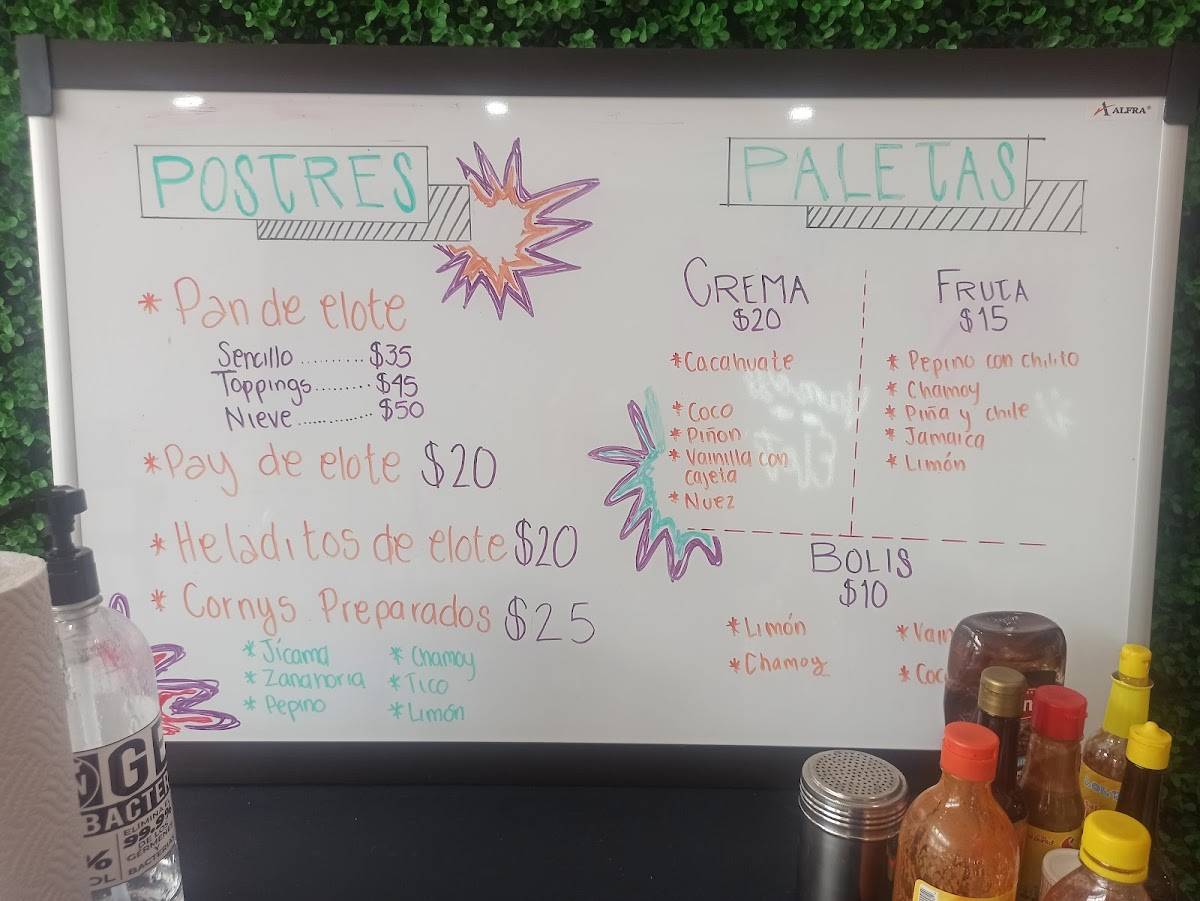 ALFRA
POSTRES
* Pan de elote
Sencillo ......... $35
Toppings ........ $45
Nieve ............ $50
* Pay de elote $20
* Heladitos de elote $20
* Cornys Preparados $25
* Jícama
* Zanahoria
* Pepino
* Chamoy
* Tico
* Limón
PALETAS
CREMA
$20
* Cacahuate
* Coco
* Piñon
* Vainilla con
cajeta
* Nuez
FRUTA
$15
* Pepino con chilito
* Chamoy
* Piña y chile
* Jamaica
* Limón
BOLIS
$10
* Limón
* Chamoy
GE
BACTER
99.9%